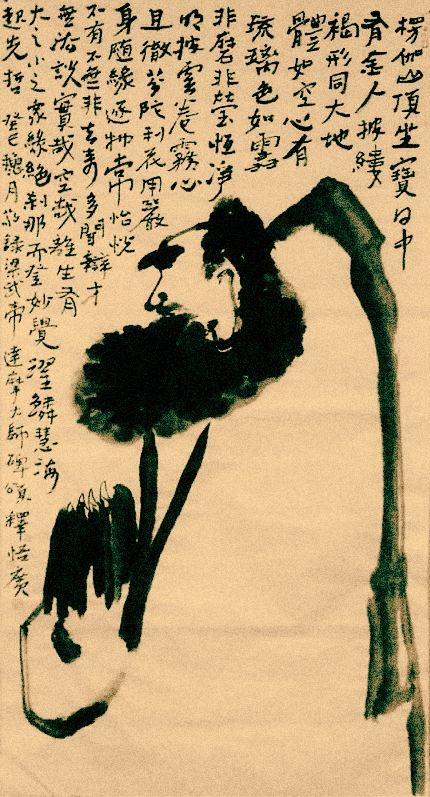 楞伽山頂坐寶日中
有金人披縷
褐形同大地
體如空心有
琉璃色如雪
非磨非瑩恒淨
明披雲卷霧心
且徹芬陀利花用嚴
身隨緣逐物常怡悅
不有不無非去多聞辯才
無法說實哉空哉離生有
大之小之眾緣絕剎那而登妙覺躍鱗慧海
起先哲 癸巳穐月敬錄梁武帝達摩大師碑頌 釋悟廣